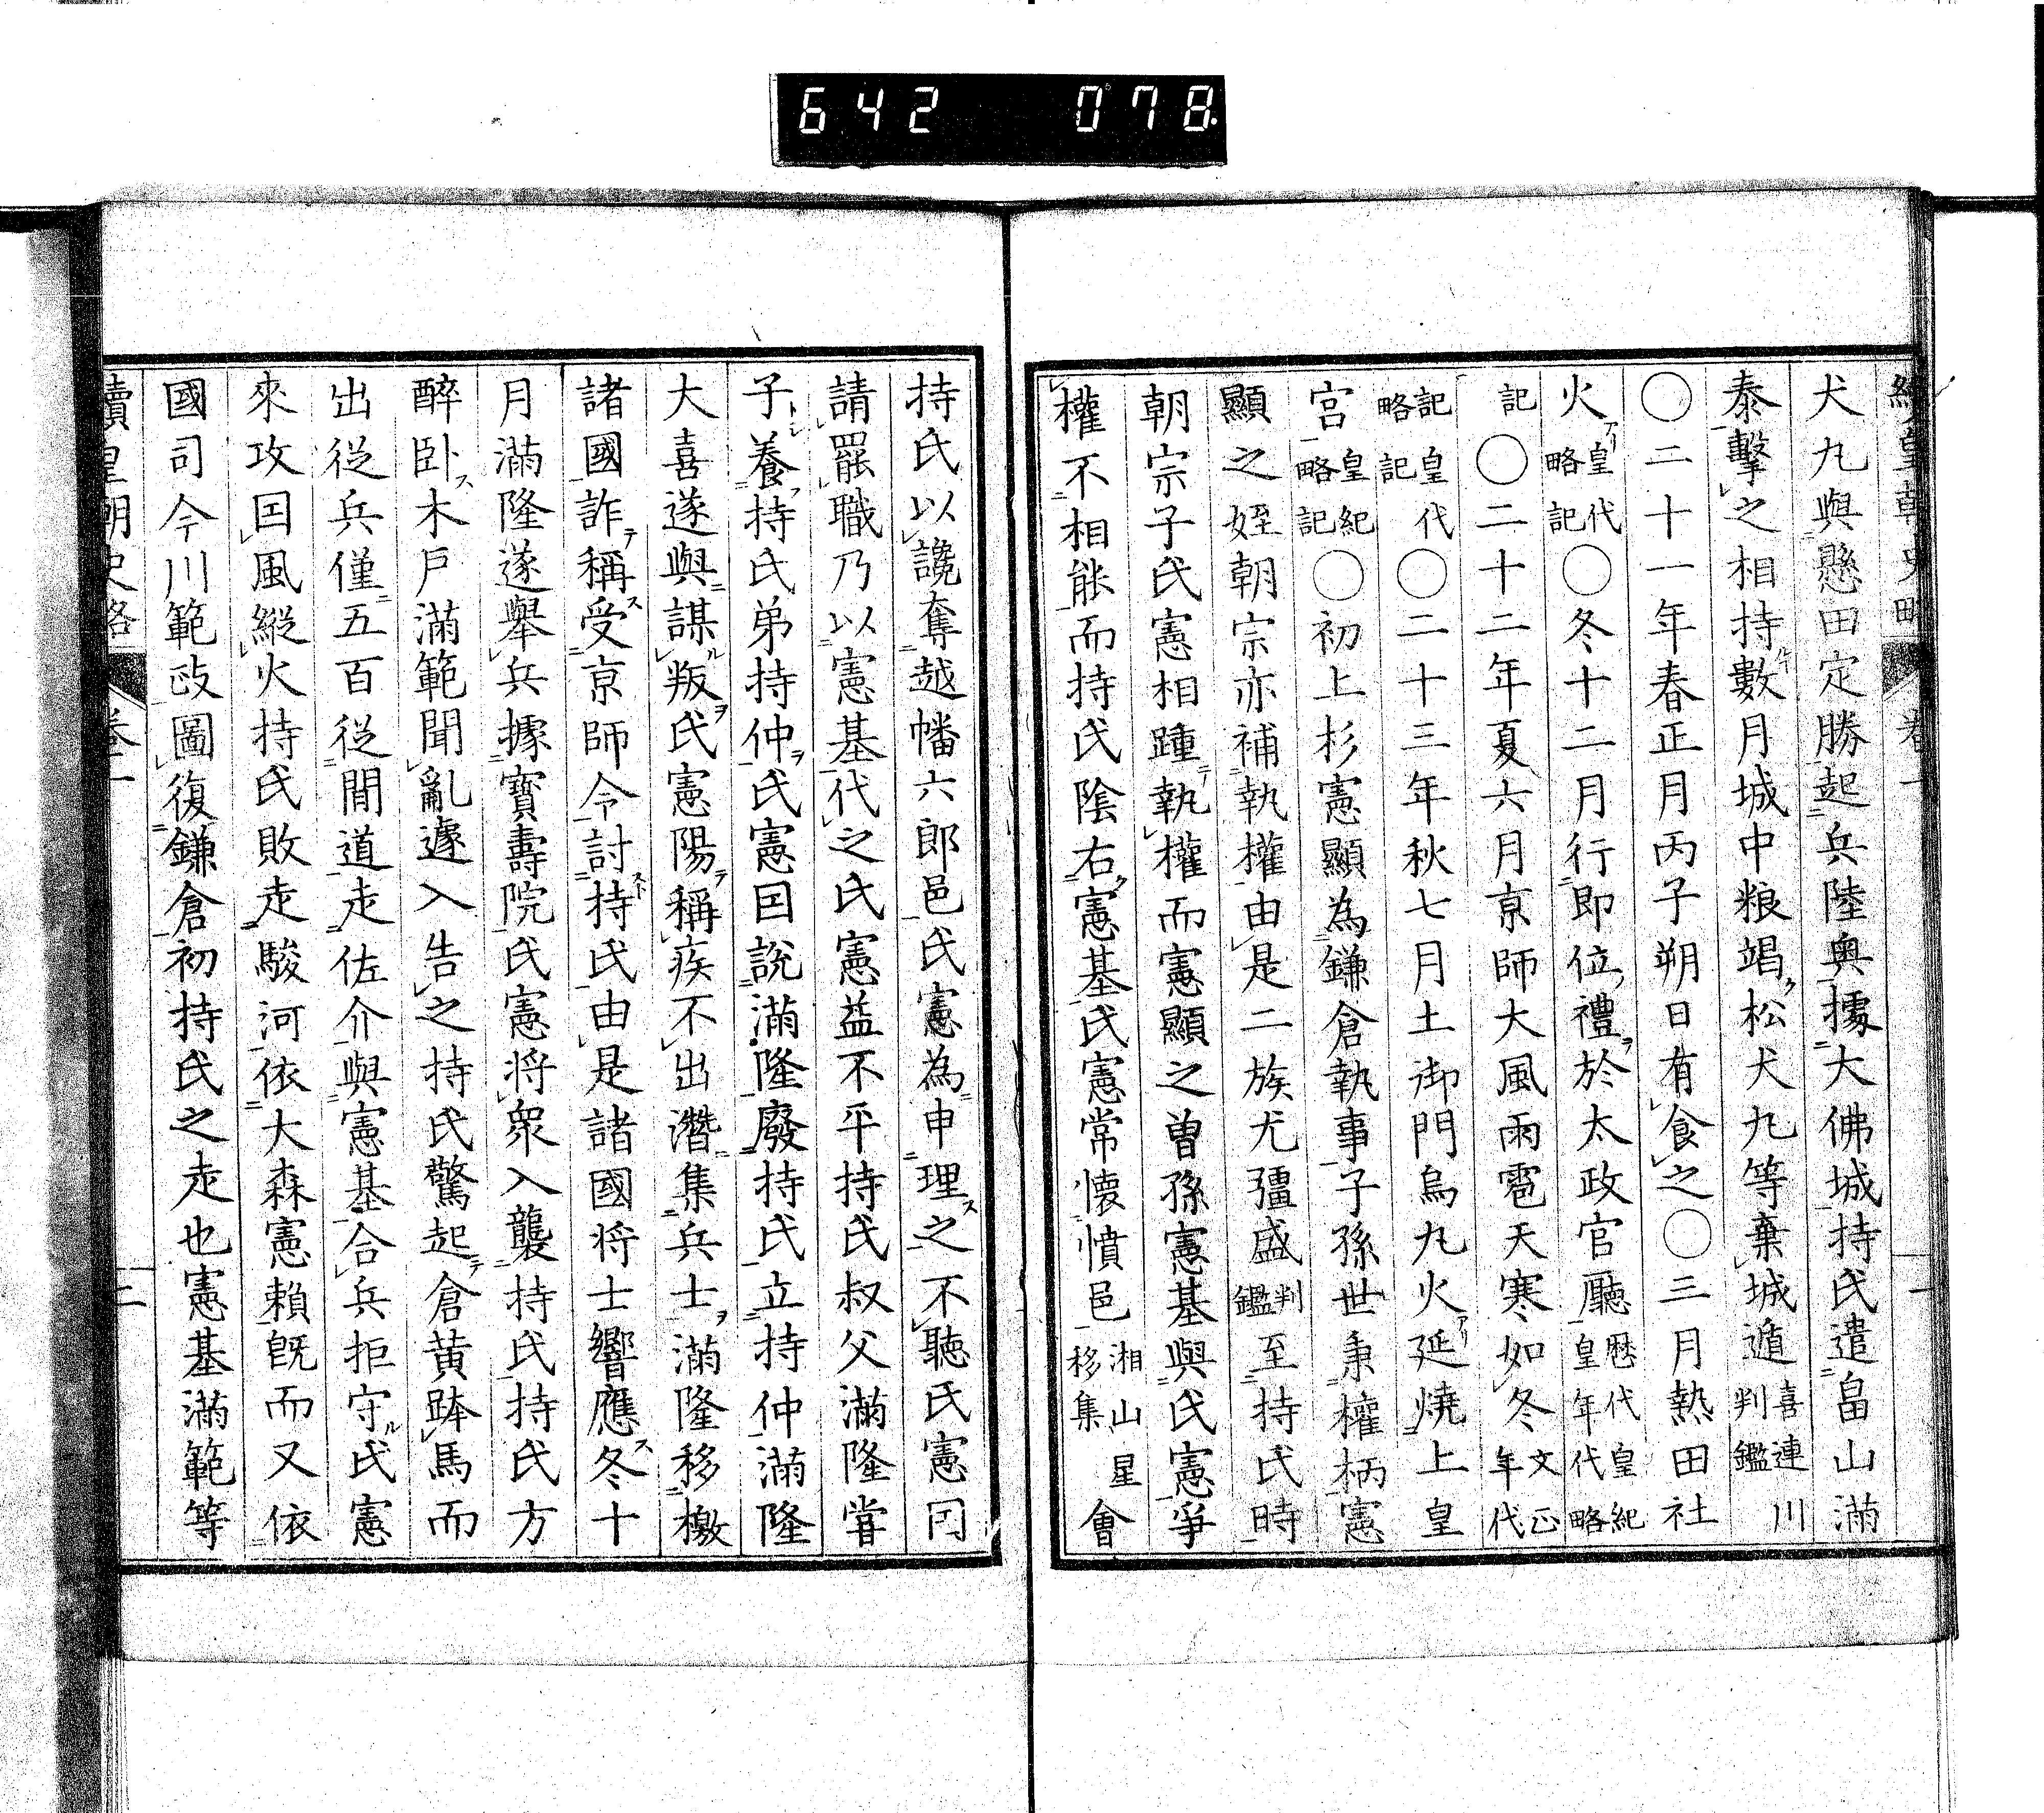 642 078
續皇朝史略 卷一 一
犬丸與懸田定勝起兵陸奥據大佛城持氏遣畠山滿
泰擊之相持數月城中粮竭松犬丸等棄城遁喜連川判鑑
○二十一年春正月丙子朔日有食之○三月熱田社
火皇代略記○冬十二月行即位禮於太政官廳歴代皇紀皇年代略
記○二十二年夏六月京師大風雨雹天寒如冬文正年代
記略皇代記○二十三年秋七月土御門烏丸火延燒上皇
宮皇紀略記○初上杉憲顯為鎌倉執事子孫世秉權柄憲
顯之姪朝宗亦補執權由是二族尤彊盛判鑑至持氏時
朝宗子氏憲相踵執權而憲顯之曽孫憲基與氏憲爭
權不相能而持氏陰右憲基氏憲常懷憤邑湘山星移集會
持氏以讒奪越幡六郎邑氏憲為申理之不聽氏憲因
請罷職乃以憲基代之氏憲益不平持氏叔父滿隆嘗
子養持氏弟持仲氏憲因說滿隆廢持氏立持仲滿隆
大喜遂與謀叛氏憲陽稱疾不出潛集兵士滿隆移檄
諸國詐稱受京師令討持氏由是諸國将士響應冬十
月滿隆遂舉兵據寶壽院氏憲将衆入襲持氏持氏方
醉卧木戸滿範聞亂遽入告之持氏驚起倉黄跨馬而
出從兵僅五百從間道走佐介與憲基合兵拒守氏憲
來攻因風縱火持氏敗走駿河依大森憲賴既而又依
國司今川範政圖復鎌倉初持氏之走也憲基滿範等
續皇朝史略 卷一 二